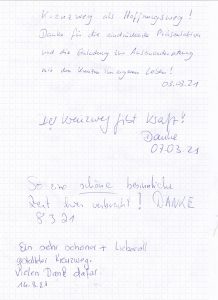 Kreuzweg als Hoffnungsweg!
Danke für die eindrückliche Präsentation
und die Einladung zur Auseinandersetzung
mit den Kreuzen im eigenen Leben!
05.03.21
Der Kreuzweg gibt Kraft!
Danke
07.03.21
So eine schöne besinnliche
Zeit hier verbracht! DANKE
8 3 21
Ein sehr schöner + liebevoll
gestalteter Kreuzweg.
Vielen Dank dafür.
14.3.21